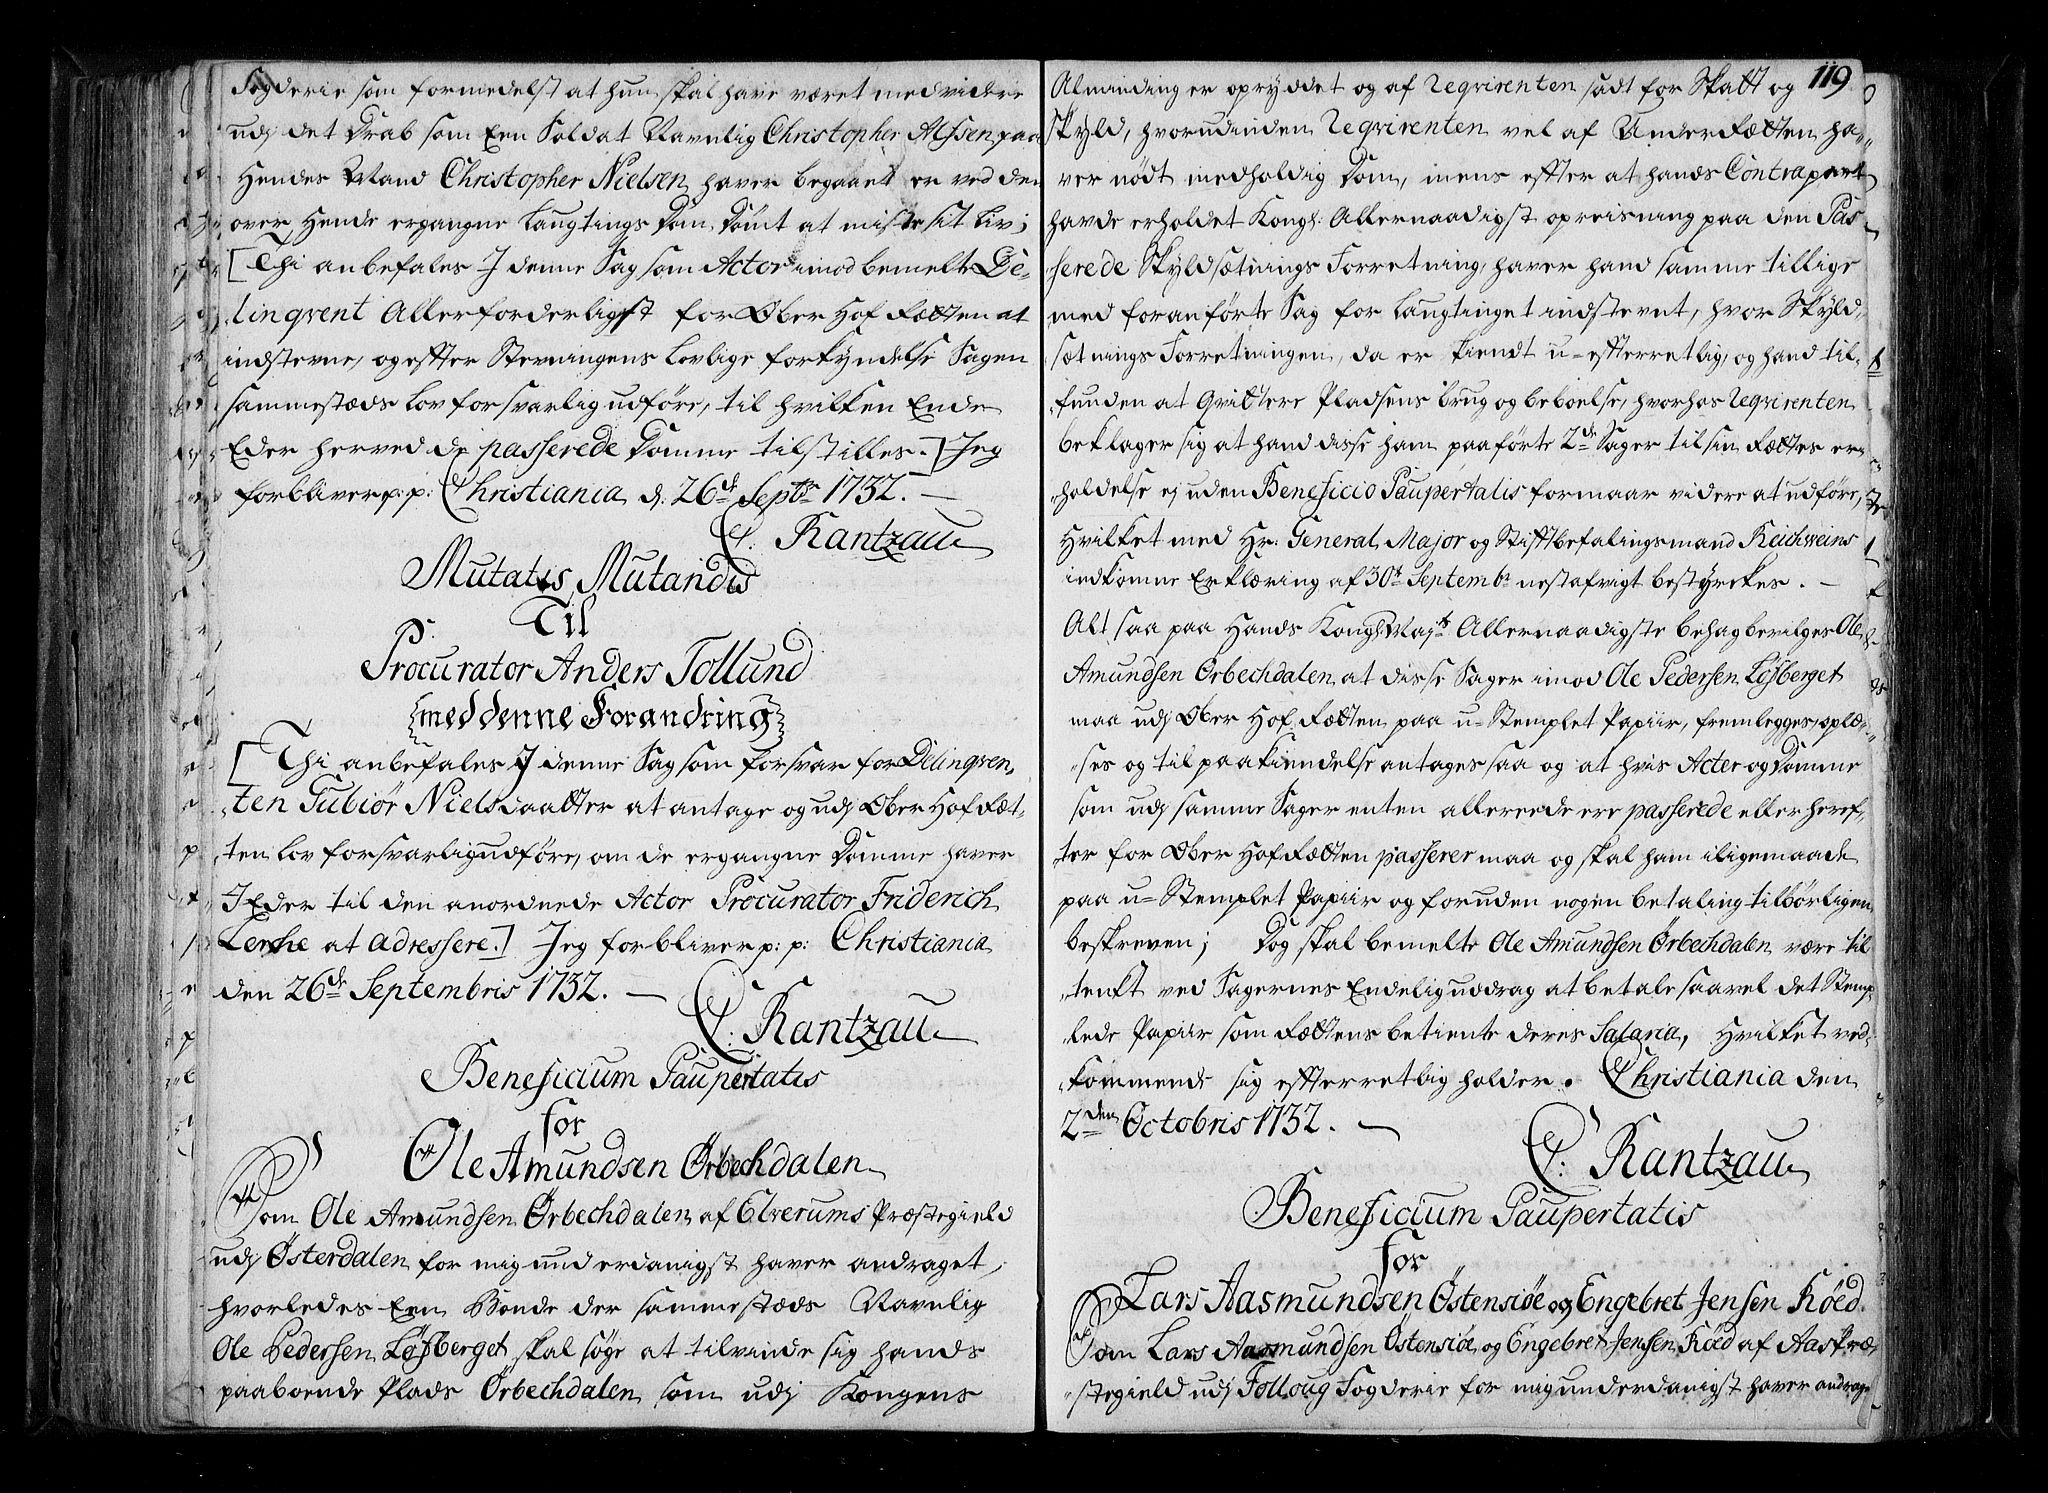 Fogderie som formedelst at hun skal have været medvidere
udj det Drab som Een Soldat Navnlig Christopher Alfsen paa
Hendes Mand Christopher Nielsen haver begaaet er ved den
over Hende ergangne Laugtings Dom Dömt at miste sit Liv;
[Thi anbefales I denne Sag som Actor imod bemelte De-
linqvent Allerforderligst for Ober Hof Retten at
indstevne, og effter Stevningens Lovlige forkyndelse Sagen
sammestæds Lov forsvarlig udföre, til hvilken Ende
Eder herved de passerede Domme tilstilles.] Jeg
forbliver p: p: Christiania d: 26de Septbr 1732. —
C. Rantzau
Mutatis Mutandis
Til
Procurator Anders Tollund
med denne Forandring
[Thi anbefales I denne Sag som forsvar for Delinqven-
ten Gubiör Nielsdaatter at antage og udj Ober Hof Ret-
ten Lov forsvarlig udföre, om de ergangne Domme haver
I Eder til den anordnede Actor Procurator Friderich
Lerche at adressere.] Jeg forbliver p: p: Christiania
den 26de Septembris 1732. —
C. Rantzau
Beneficium Paupertatis
for
Ole Amundsen Örbechdalen
Som Ole Amundsen Örbechdalen af Elverums Præstegield
udj Österdalen for mig underdanigst haver andraget,
hvorledes Een Bonde der sammestæds Navnlig
Ole Pedersen Löfberget skal söge at tilvinde sig hands
paaboende Plads Örbechdalen som udj Kongens
119
Alminding er opryddet og af Reqvirenten sadt for Skatt og
Skyld, hvorudinden Reqvirenten vel af Underretten ha-
ver nödt medholdig Dom, mens effter at hands Contrapart
havde erholdet Kongl: Allernaadigst opreisning paa den Pas-
serede Skyldsætnings Forretning, haver hand samme tillige
med foranförte Sag for Laugtinget indstevnt, hvor Skyld-
sætnings Forretningen, da er kiendt u-efterretlig, og hand til-
funden at Qvittere Pladsens brug og beboelse, hvorhos Reqvirenten
beklager sig at hand disse ham paaförte 2de Sager til sin Rættes er-
holdelse ej uden Beneficio Paupertatis formaar videre at udföre,
Hvilket med Hr: General Major og Stiftbefalingsmand Reichweins
indkomne Erklæring af 30te Septembr nestafvigt bestyrkes. —
Alt saa paa Hands Kongl: Majts Allernaadigste behag bevilges Ole
Amundsen Örbechdalen at disse Sager imod Ole Pedersen Löfberget
maa udj Ober Hof Retten paa u-Stemplet Papiir, fremlegges, oplæ-
ses og til paakiendelse antages saa og at hvis Acter og Domme
som udj samme Sager enten allereede ere passerede eller heref-
ter for Ober Hof Retten passerer maa og skal ham iligemaade
paa u-Stemplet Papiir og foruden nogen betaling tilbörligen
beskreven; Dog skal bemelte Ole Amundsen Örbechdalen være til
tenkt ved Sagernes Endelig uddrag at betale saavel det Stemp-
lede Papiir som Rettens betiente deres Salaria, Hvilket ved-
kommende sig effterretlig holder. Christiania den
2den Octobris 1732. —
C. Rantzau
Beneficium Paupertatis
for
Lars Aasmundsen Östensiöe og Engebret Jensen Röed.
Som Lars Aasmundsen Östensiöe og Engebret Jensen Röed af Aas Præ-
stegield udj Folloug Fogderie for mig underdanigst haver andrage